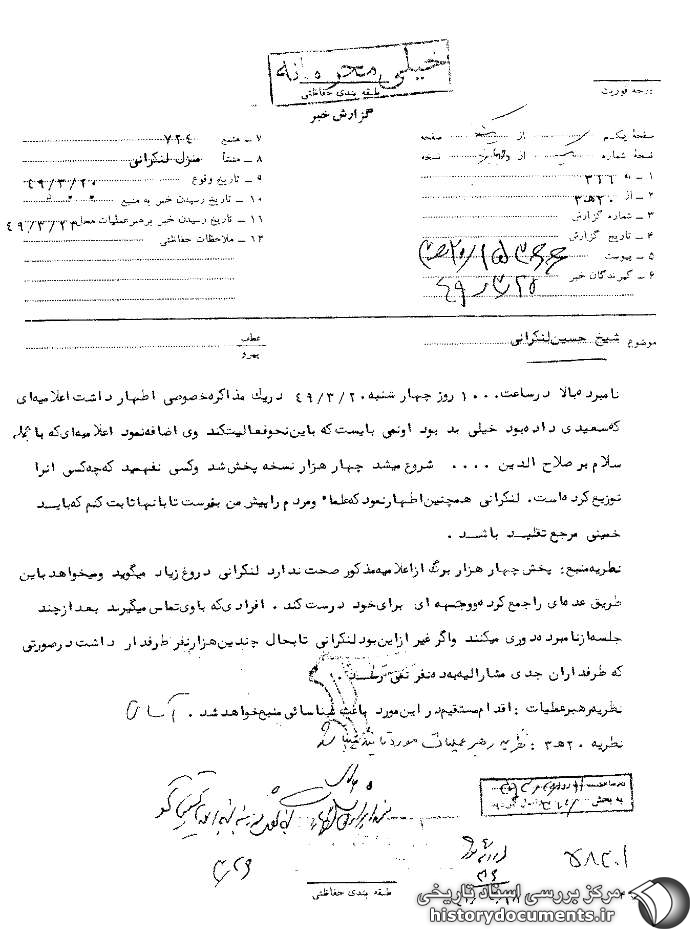 خیلی محرمانه
طبقه بندی حفاظتی
گزارش خبر
درجه فوریت
صفحهٔ یکم از یک صفحه
نسخهٔ شماره از نسخه
۱ ـ به ۳۱۲
۲ ـ از ۲۰ﻫ۳
۳ ـ شماره گزارش
۴ ـ تاریخ گزارش
۵ ـ پیوست
۶ ـ گیرندگان خبر
۷ ـ منبع ۷۲٤
۸ ـ منشأ منزل لنکرانی
۹ ـ تاریخ وقوع ٤۹/۳/۲۰
۱۰ ـ تاریخ رسیدن خبر به منبع
۱۱ ـ تاریخ رسیدن خبر برهبر عملیات محل ٤۹/۳/۲۳
۱۲ ـ ملاحظات حفاظتی
موضوع شیخ حسین لنکرانی
عطف
پیرو
نامبرده بالا در ساعت ۱۰۰۰ روز چهارشنبه ٤۹/۳/۲۰ در یک مذاکره خصوصی اظهار داشت اعلامیه‌ای
که سعیدی داده بود خیلی بد بود او نمی بایست که باین نحو فعالیت کند وی اضافه نمود اعلامیه‌ای که با جمله
سلام بر صلاح الدین .... شروع میشد چهار هزار نسخه پخش شد و کسی نفهمید که چه کسی آنرا
توزیع کرده است. لنکرانی همچنین اظهار نمود که علماء و مردم را پیش من بفرست تا بآنها ثابت کنم که باید
خمینی مرجع تقلید باشد .
نظریه منبع: پخش چهار هزار برگ از اعلامیه مذکور صحت ندارد لنکرانی دروغ زیاد میگوید و میخواهد باین
طریق عده‌ای را جمع کرده و وجهه ای برای خود درست کند . افرادی که با وی تماس میگیرند بعد از چند
جلسه از نامبرده دوری میکنند و اگر غیر از این بود لنکرانی تا بحال چندین هزار نفر طرفدار داشت در صورتی
که طرفداران جدی مشارالیه به ده نفر نمی رسند .
نظریه رهبر عملیات : اقدام مستقیم در این مورد باعث شناسائی منبع خواهد شد . آسان
نظریه ۲۰ﻫ۳ : نظریه رهبر عملیات مورد تائید میباشد
به بخش
طبقه بندی حفاظتی
مرکز بررسی اسناد تاریخی
historydocuments.ir